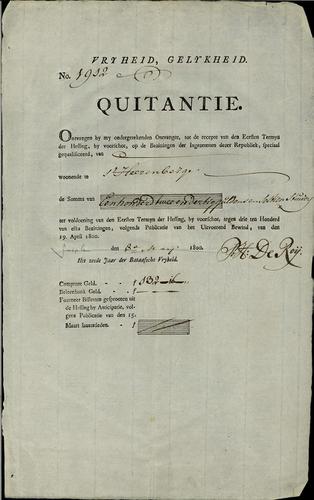 VRYHEID, GELYKHEID.
No. 1912
QUITANTIE.
Ontvangen by my ondergetekenden Ontvanger, tot de recepte van den Eersten Termyn
der Heffing, by voorschot, op de Bezittingen der Ingezetenen dezer Republiek, speciaal
gequalificeerd, van
woonende in 's Heerenberg
de Somma van Eenhonderd twee en dertig
ter voldoening van den Eersten Termyn der Heffing, by voorschot, tegen drie ten Honderd
van elks Bezittingen, volgends Publicatie van het Uitvoerend Bewind, van den
19. April 1800.
den 8 Mey 1800.
Het zesde Jaar der Bataafsche Vryheid.
P. H. De Roy
Comptant Geld. - ƒ 132
Beleenbank Geld. - ƒ
Fourneer Billetten gesprooten uit
de Heffing by Anticipatie, volgens
Publicatie van den 15.
Maart laatstleden. - ƒ